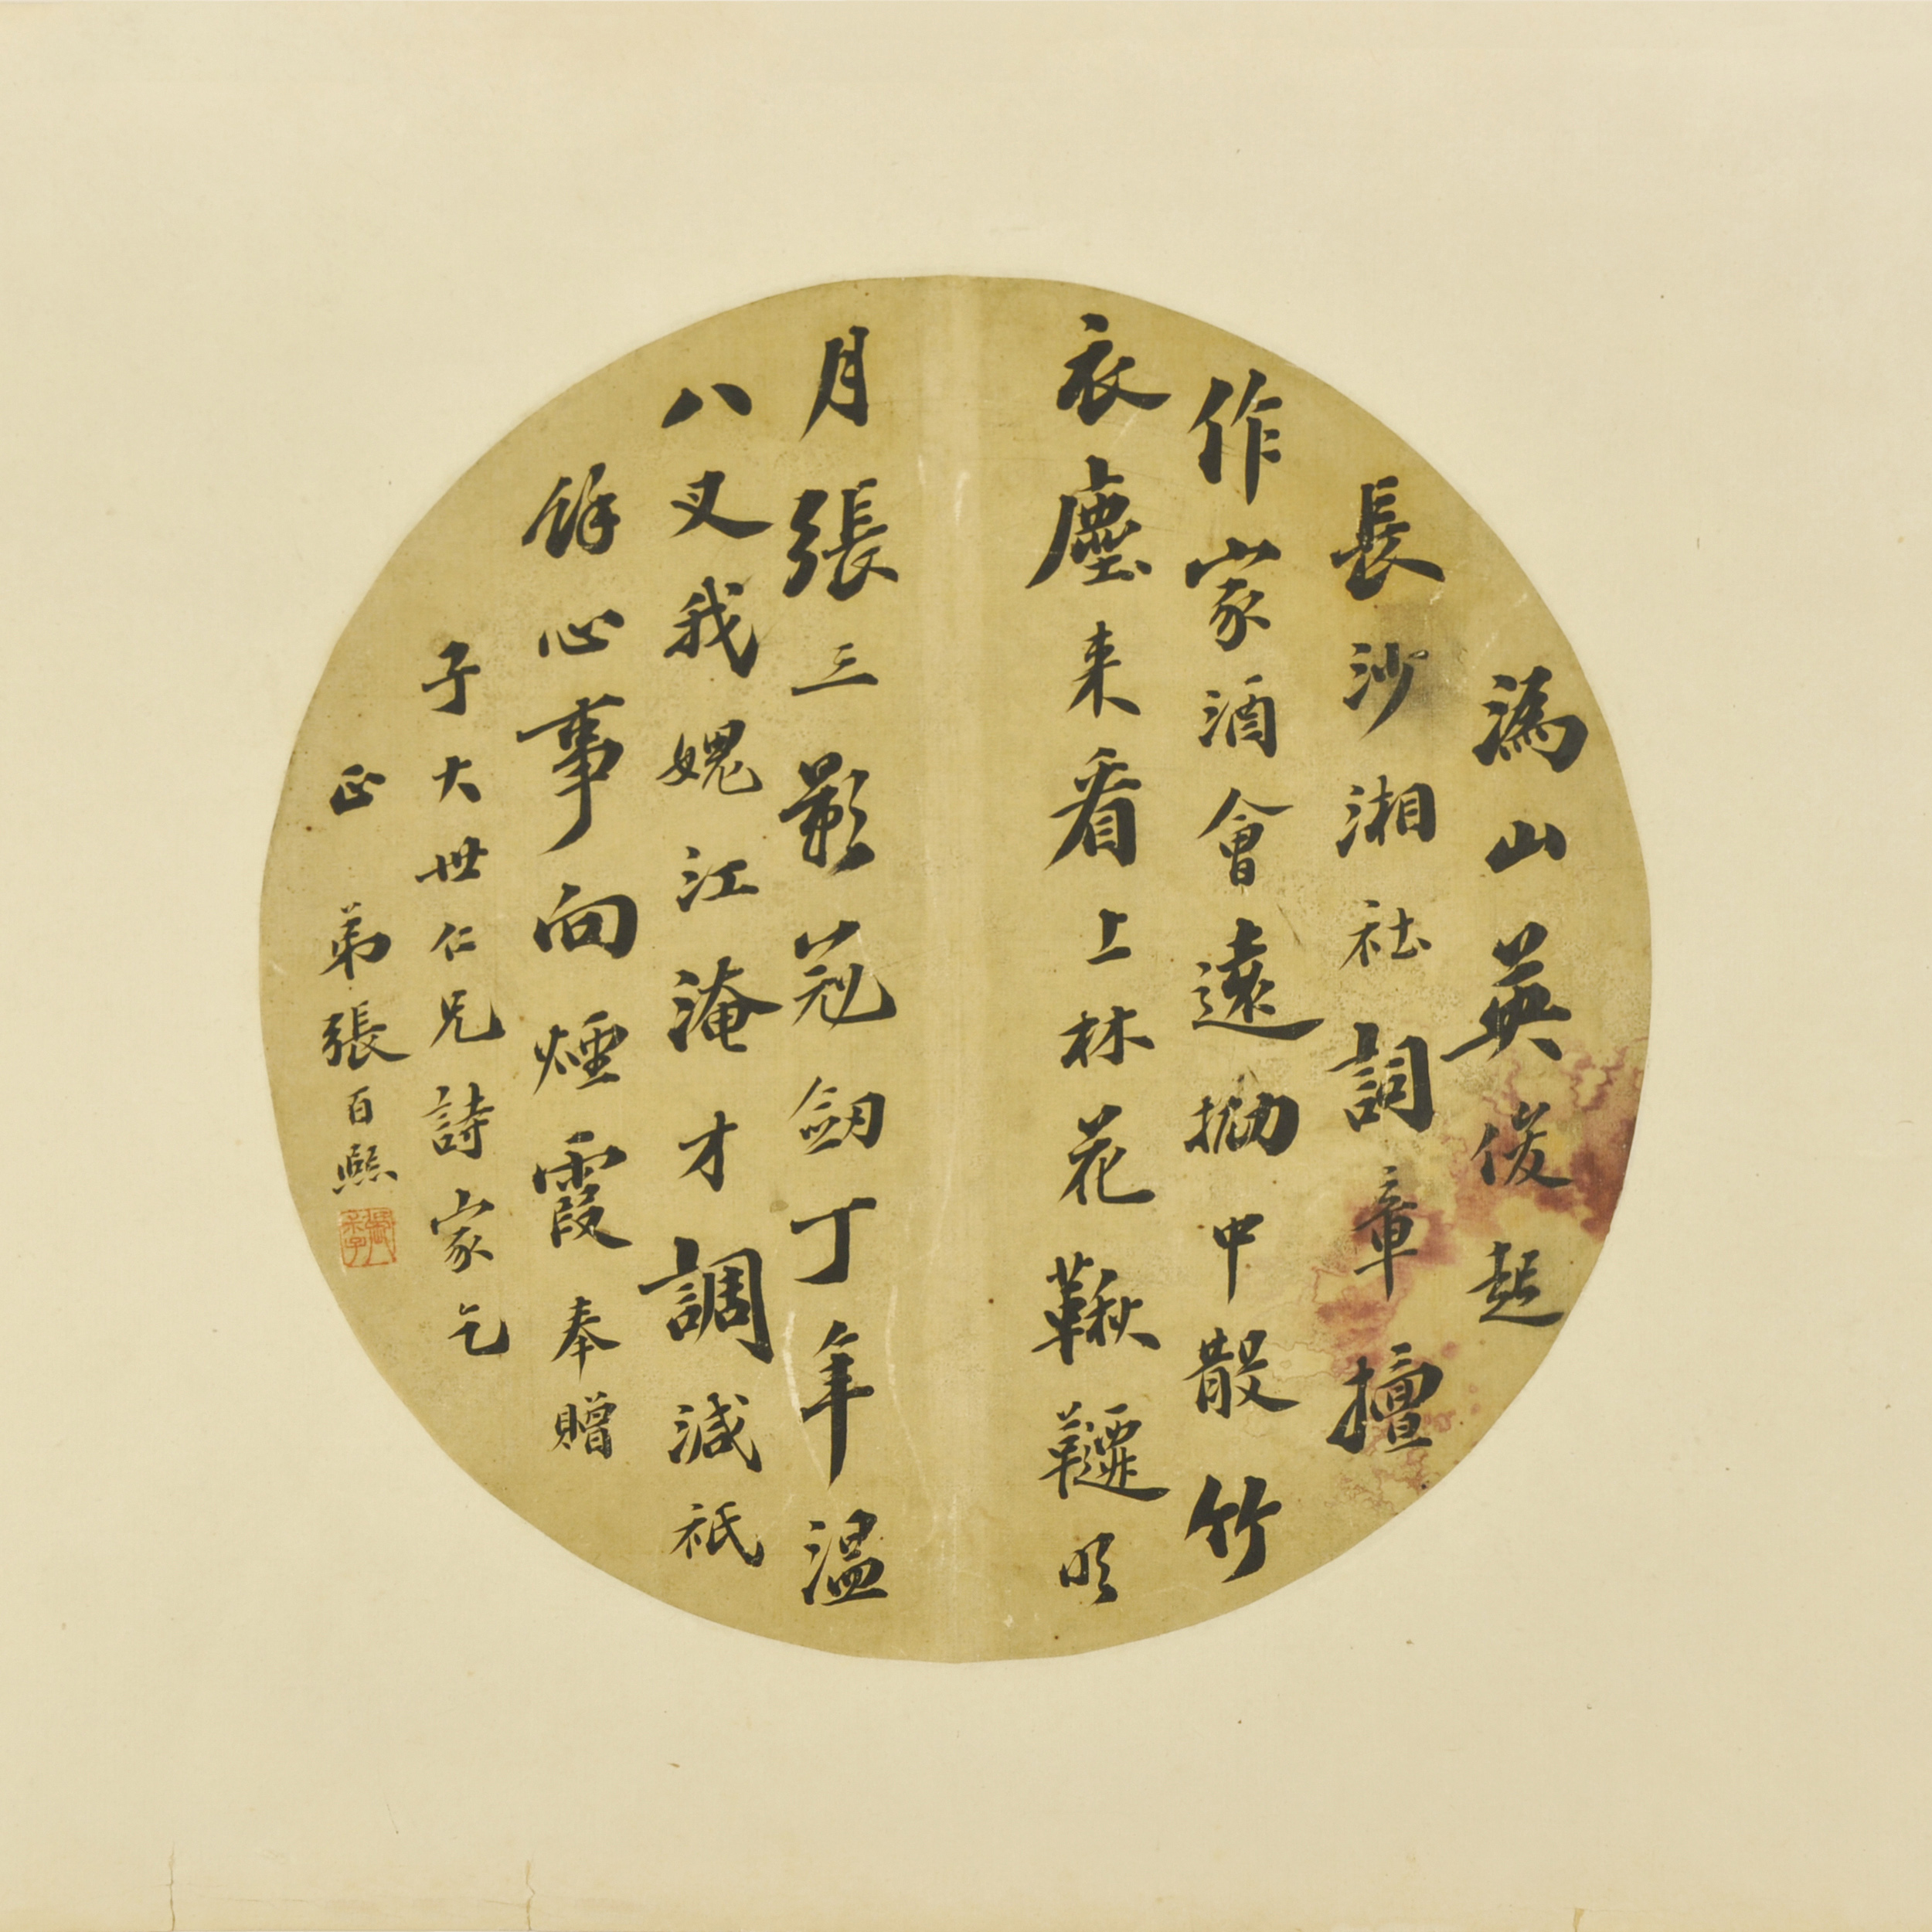 溈山英俊起
長沙湘社詞章擅
作家酒會遠拗中散竹
衣塵来看上林花鞦韆明
月張三影冠劒丁年温
八叉我媿江淹才調減祇
餘心事向煙霞奉贈
子大世仁兄詩家乞
正 弟張百熙